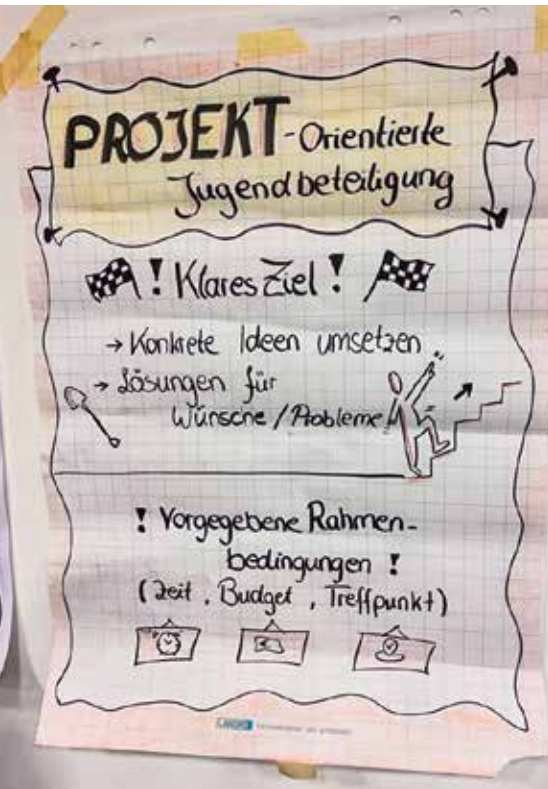 PROJEKT-Orientierte
Jugendbeteiligung
! Klares Ziel !
→ Konkrete Ideen umsetzen
→ Lösungen für
Wünsche/Probleme
! Vorgegebene Rahmen-
bedingungen !
(Zeit, Budget, Treffpunkt)